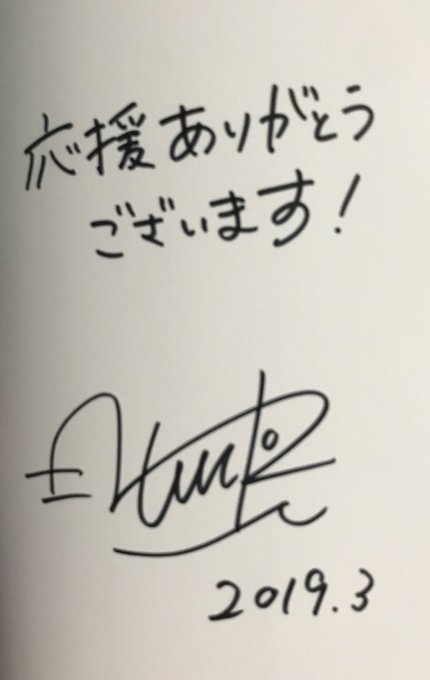 応援ありがとう
ございます!
2019.3